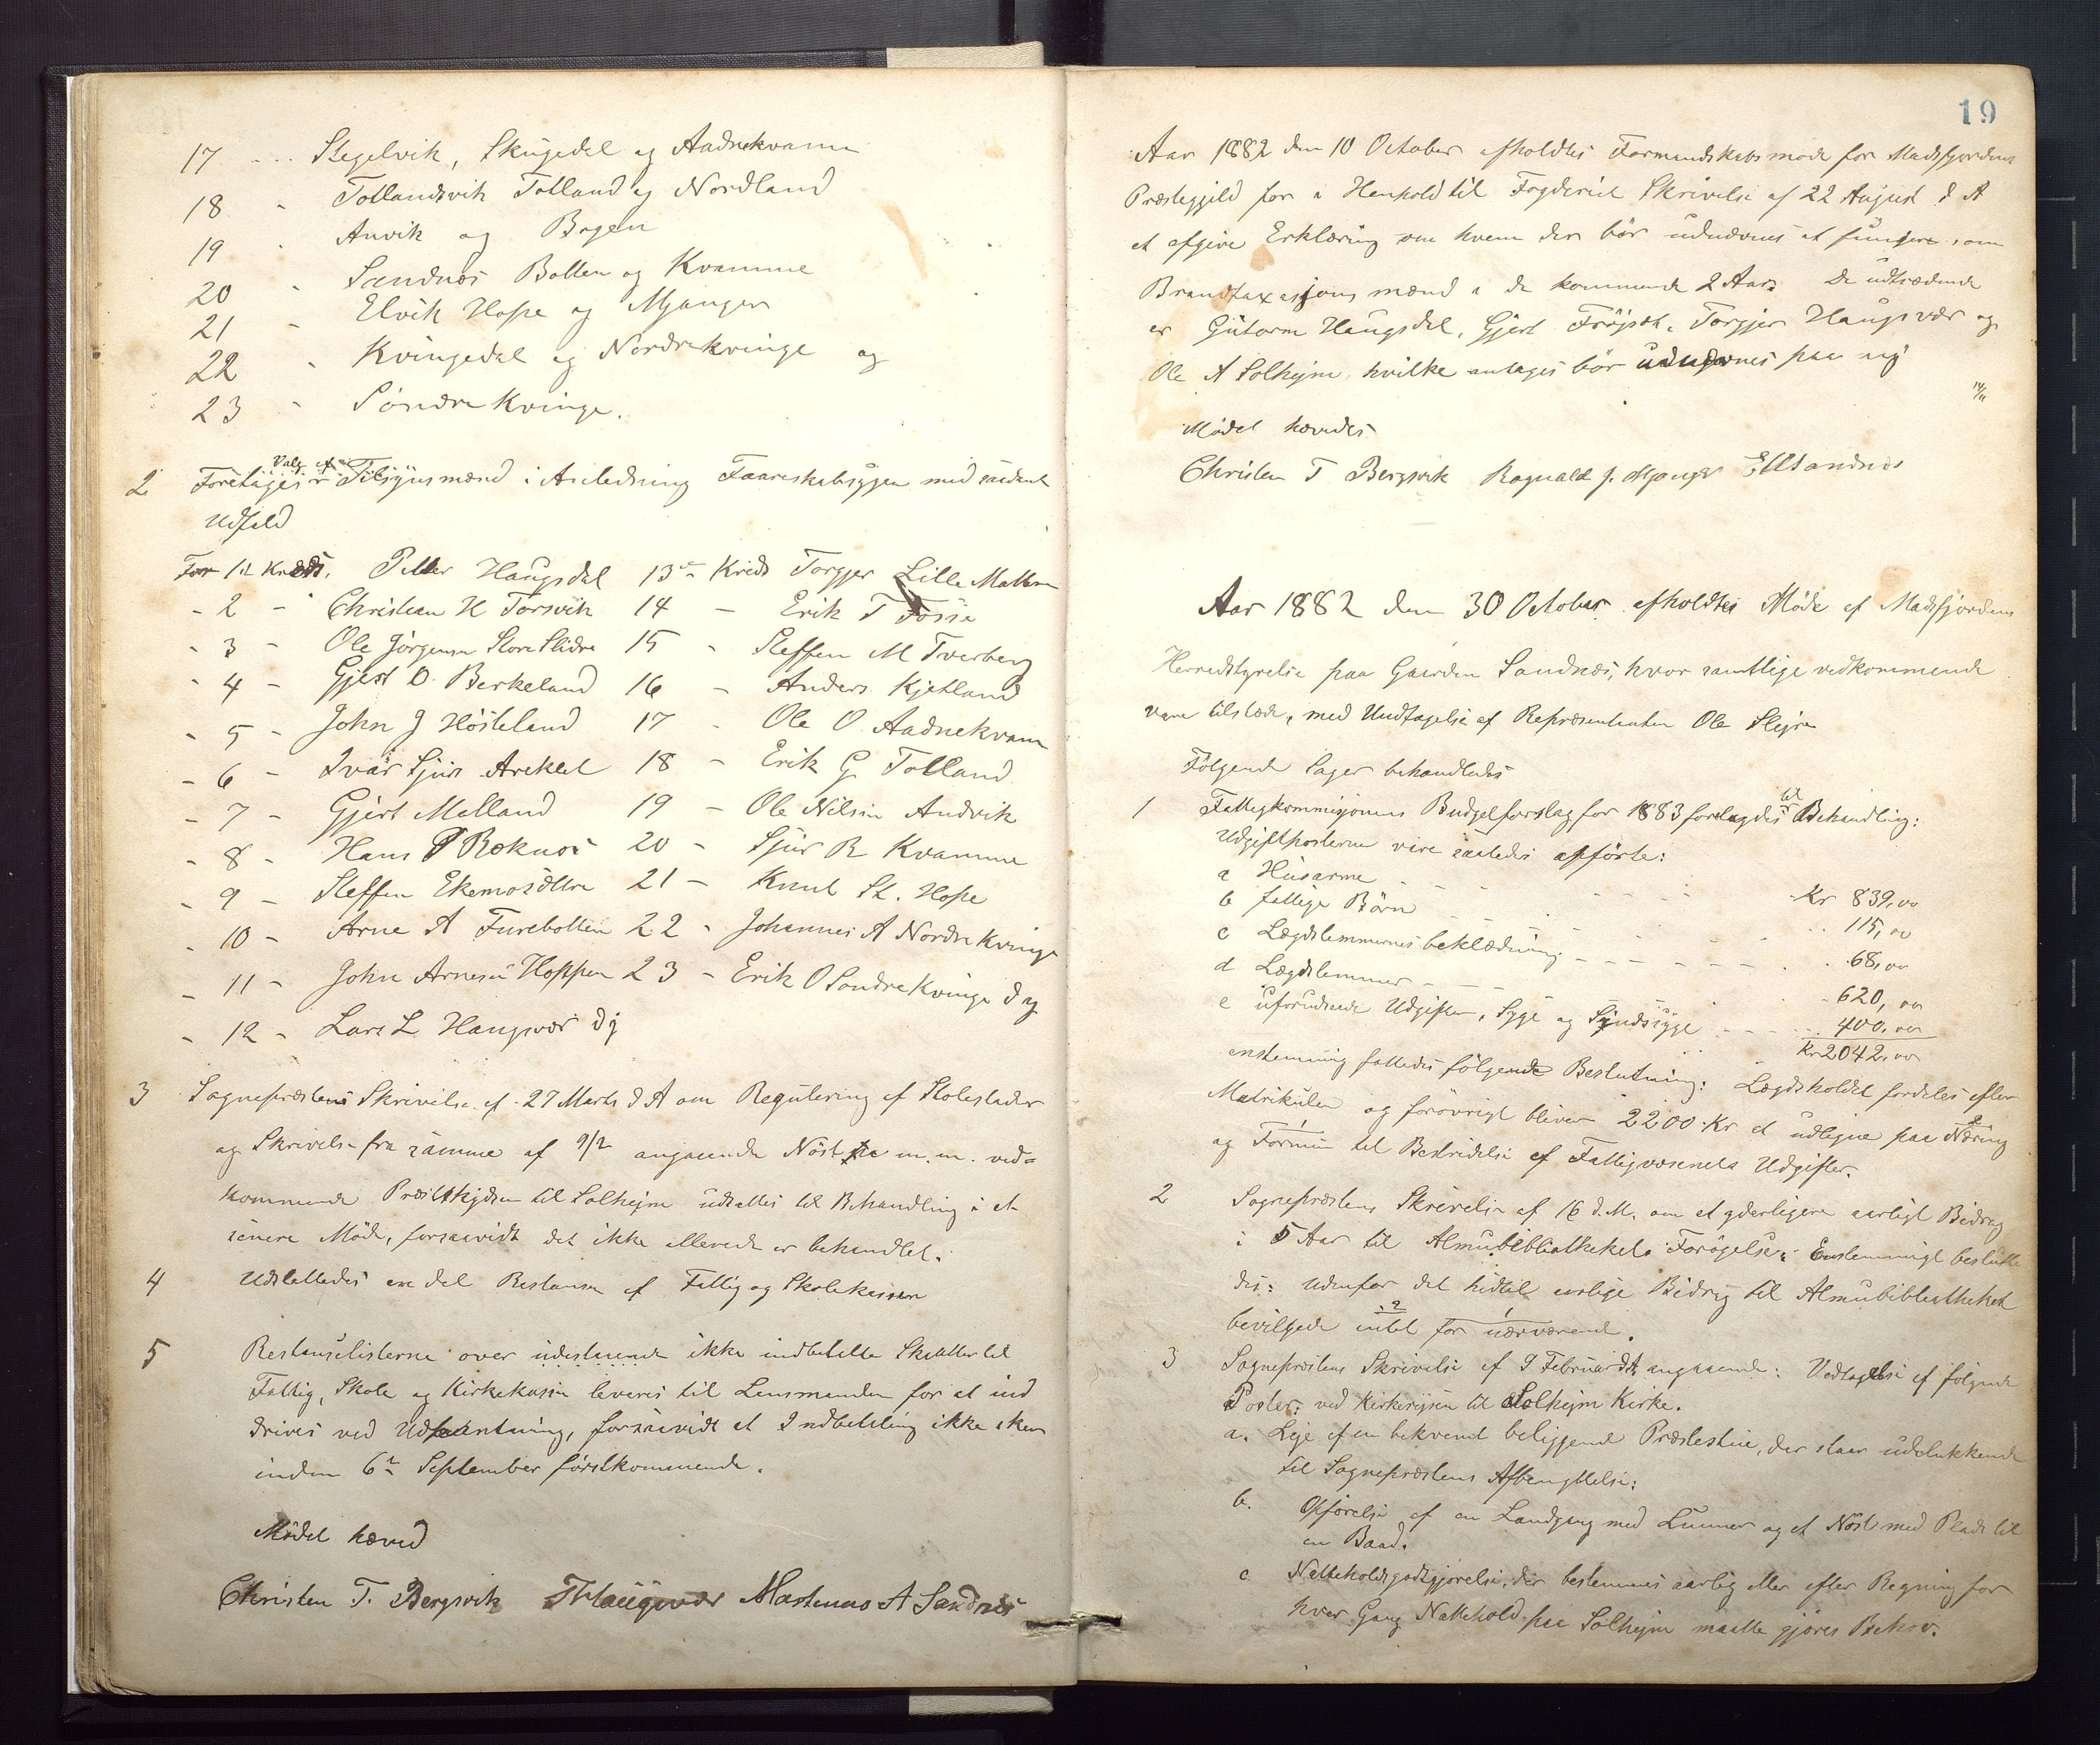 17 - - - Stegelvik, Skugedal og Aadnekvam
18 - Tollandsvik Tolland og Nordland
19 - Anvik og Bogen
20 - Sandnæs Botten og Kvamme
21 - Elvik Hope og Mjanger
22 - Kvingedal og Nordrekvinge og
23 - Söndre Kvinge.
2 Foretages Valg af Tilsynsmænd i Anledning Faareskabsygen med saadant
Udfald
For 1st Kreds. Petter Haugsdal 13de Kreds Torgjer Lille Matten
- 2 - Christian H Torsvik 14 - Erik T Fosse
- 3 - Ole Jörgensen Store Slidre 15 - Steffen M Tverberg
- 4 - Gjert O. Berkeland 16 - Anders Kjetland
- 5 - John J Hösteland 17 - Ole O. Aadnekvam
- 6 - Ivar Sjurs Areklet 18 - Erik G Tolland
- 7 - Gjert Molland 19 - Ole Nilsen Andvik
- 8 - Hans P Roknes 20 - Sjur R Kvamme
- 9 - Steffen Ekemosöttre 21 - Knut St. Hope
- 10 - Arne A Furebotten 22 - Johannes A Nordre Kvinge
- 11 - John Arnesen Hoppen 23 - Erik O Sondre Kvinge d y
- 12 - Lars L Haugsvær d y
3 Sognepræstens Skrivelse af 27 Marts d A om Regulering af Stolestader
og Skrivelse fra samme af 9/2 angaaende Nöst m. m. ved-
kommende Præsteskydsen til Solhejm udsattes til Behandling i et
senere Möde, forsaavidt det ikke allerede er behandlet.
4 Udslettedes en del Restanser af Fattig og Skolekassen
5 Restanselisterne over udestaaende ikke indbetalte Skatter til
Fattig, Skole og Kirkekassen leveres til Lensmanden for at ind
drives ved Udpantning, forsaavidt at Indbetaling ikke sker
inden 6te September förstkommende.
Mödet hæved
Christen T. Bergsvik T Haugsvær Mortenus A Sandnæs
19
Aar 1882 den 10 October afholdtes Formandskabsmöde for Masfjordens
Præstegjeld for i Henhold til Fogderiets Skrivelse af 22 August d A
at afgive Erklæring om hvem der bör udnævnes at fungere som
Brandtaxasjons mænd i de kommende 2 Aar. De udtrædende
er Gutorm Haugsdal, Gjert Fröjset, Torgjer Haugsvær og
Ole A Solhejm, hvilke antages bör udnævnes paa ny
Mödet hævedes
Christen T Bergsvik Ragnald J. Mjanger E Sandnæs
Aar 1882 den 30 October afholdtes Möde af Masfjordens
Herredstyrelse paa Gaarden Sandnæs, hvor samtlige vedkommende
vare tilstæde, med Undtagelse af Repræsentanten Ole Slejre
Fölgende Sager behandledes
1 Fattigkommisjonens Budgetforslag for 1883 foretagdes til Behandling:
Udgiftposterne vare saaledes opförte:
a Husarme - - - Kr 839,00
b fattige Börn - - - 115,00
c Lægdslemmernes beklædning - - - 68,00
d Lægdslemmer - - - 620,00
e uforudseede Udgifter, Syge og Sindssyge - - - 400.00
Kr 2042.00
enstemmig fattedes fölgende Beslutning: Lægdsholdet fordeles efter
Matrikulen og forövrigt bliver 2200 Kr at udligne paa Næring
og Formue til Bestridelse af Fattigvæsenets Udgifter.
2 Sognepræstens Skrivelse af 16 d. M. om et yderligere aarligt Bidrag
i 5 Aar til Almubibliothekets Forögelse: Enstemmigt beslutte
des: Udenfor det hidtil aarlige Bidrag til Almubibliotheket
bevilgede intet for nærværende.
3 Sognepræstens Skrivelse af 9 Februar d A angaaende: Vedtagelse af fölgende
Poster: ved Kirkerejsen til Solhejm Kirke.
a. Leje af en bekvemt beliggende Præstestue, der staar udelukkende
til Sognepræstens Afbenyttelse:
b. Opförelse af en Landgang med Lunner og et Nöst med Plads til
en Baad.
c Natteholdsgodtgjörelse, der bestemmes aarlig eller efter Regning for
hver Gang Nattehold paa Solhejm maatte gjöres Behov.